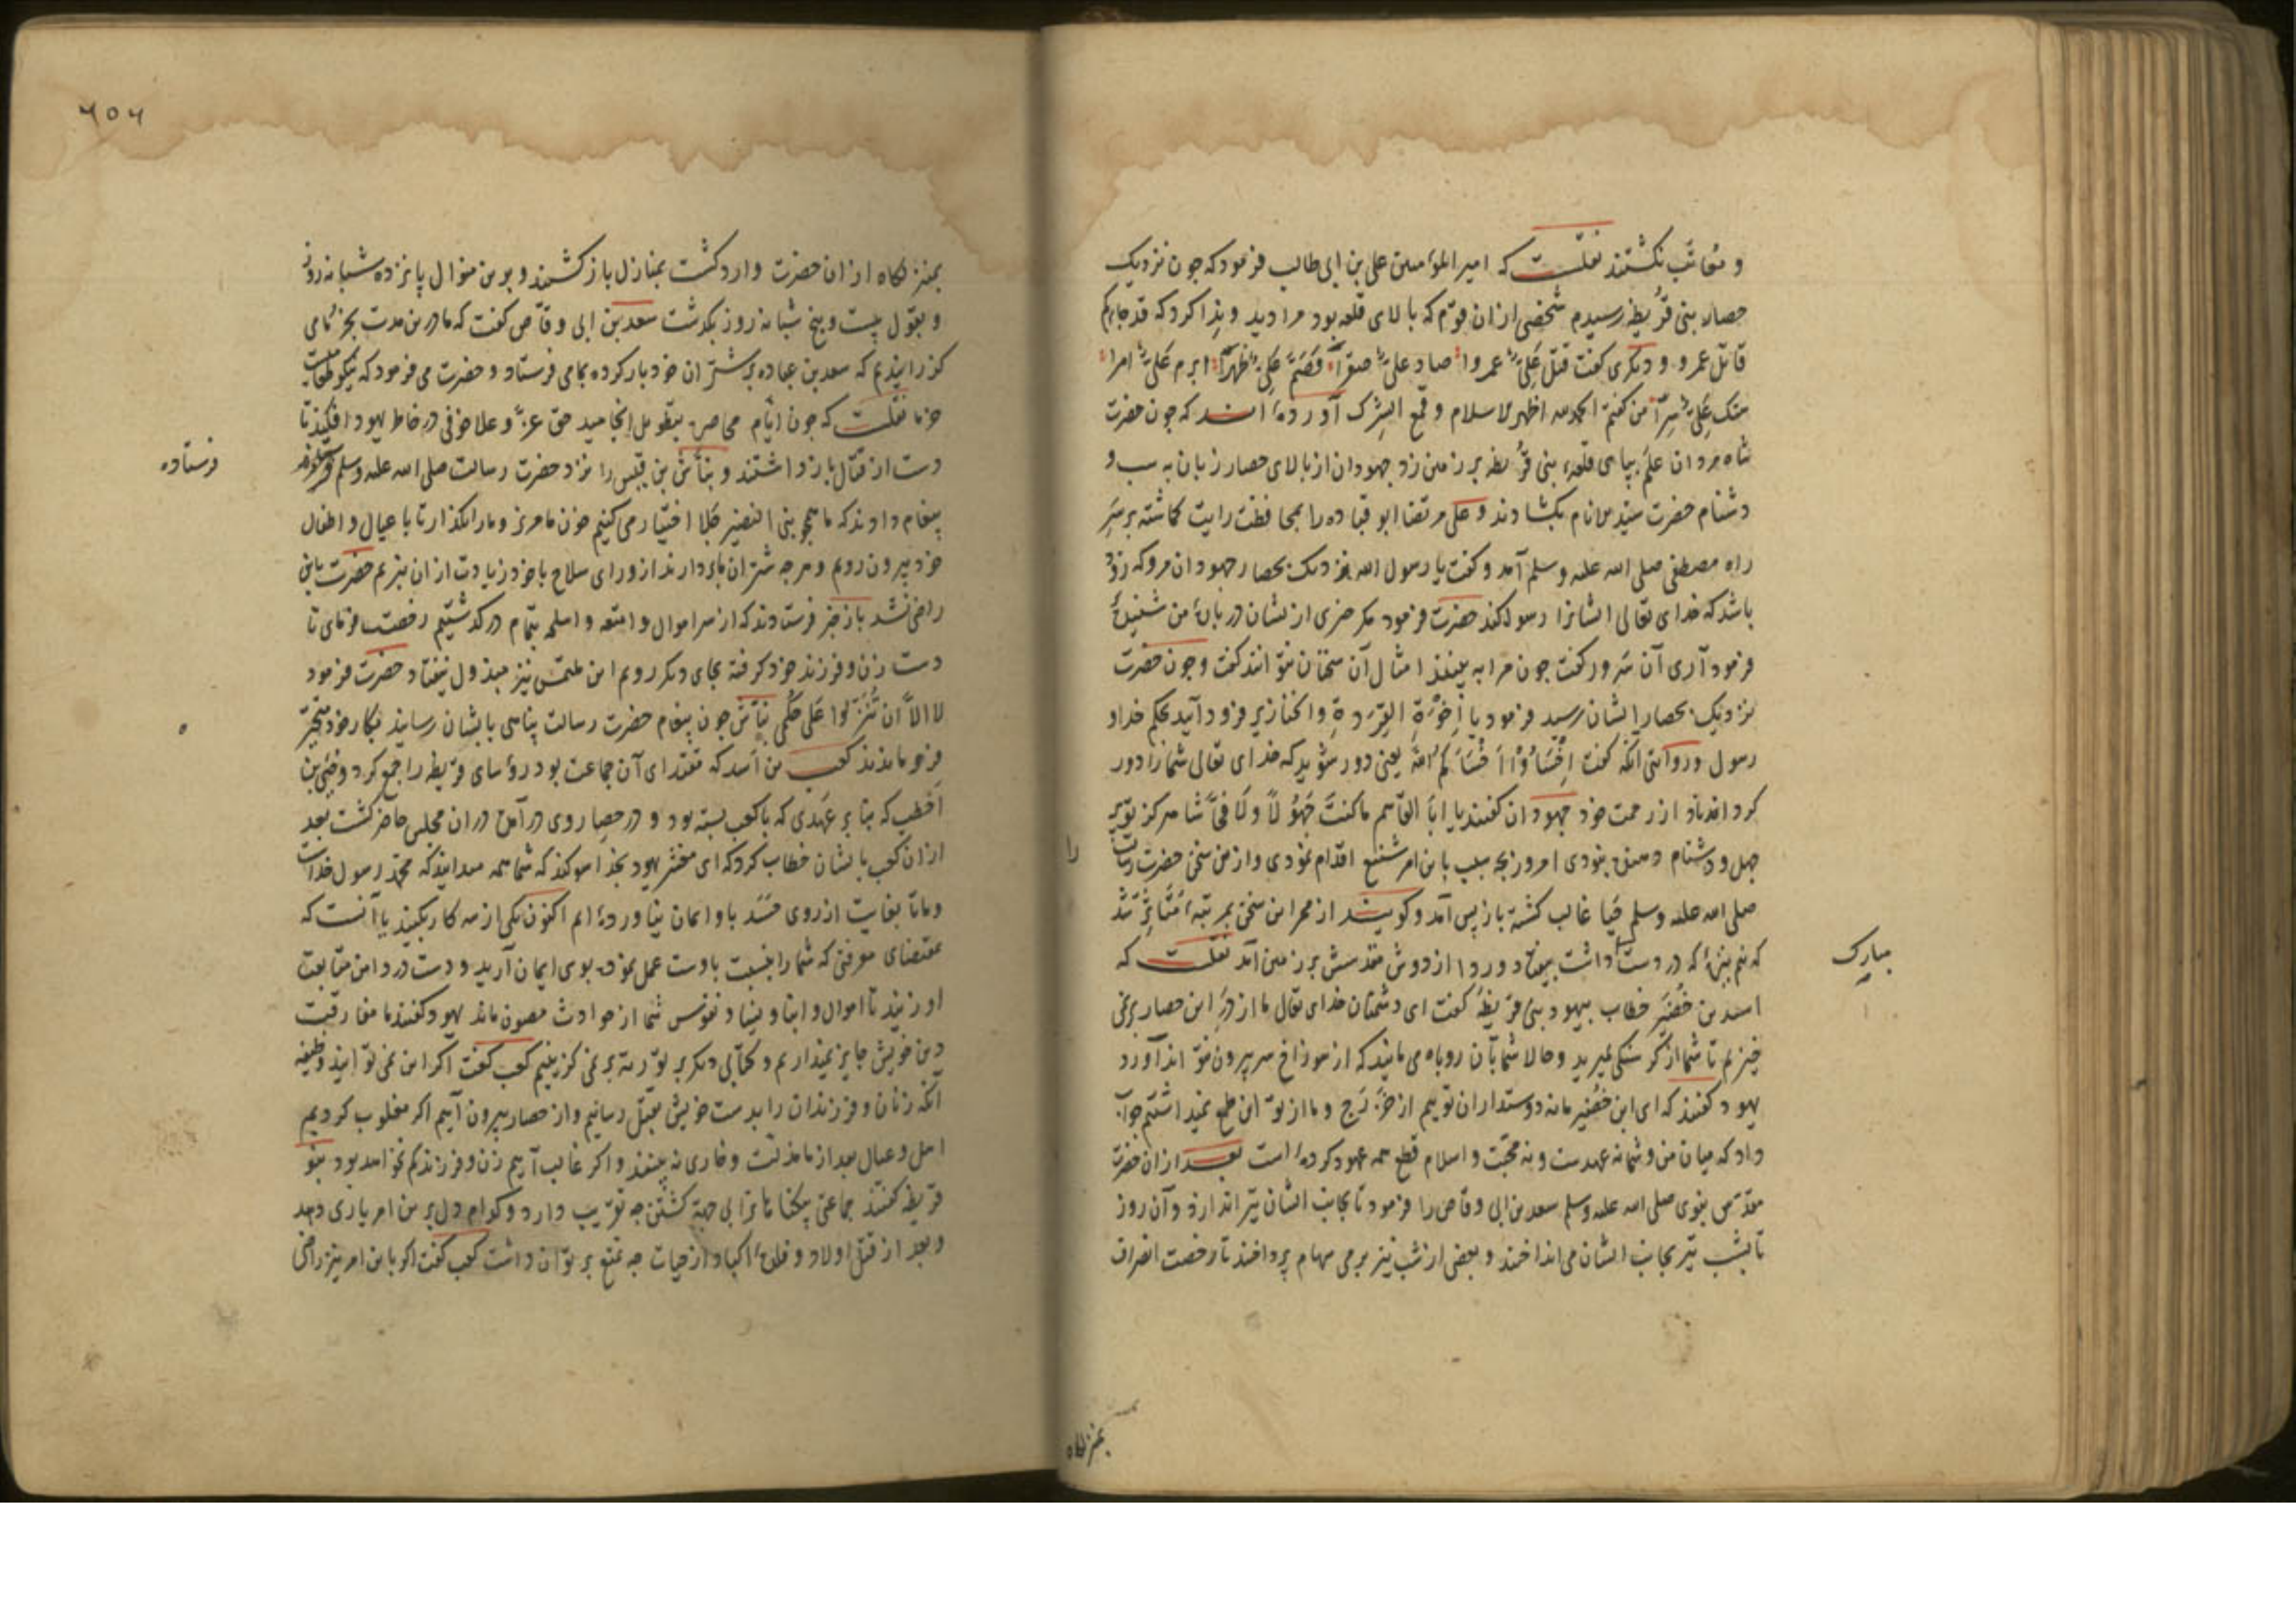 و معاتب نکشتند نقلست که امیر المؤمنین علی بن ابی طالب فرمود که چون نزدیک
حصار بنی قریظه رسیدم شخصی ازان قوم که بالای قلعه بود مرا دید و ندا کرد که قد جاءکم
قاتل عمرو و دیکری کفت قتل علیّ عمروا صاد علیّ صقرا قصم علیّ ظهرا ابرم علیّ امرا
هتک علیّ سرّا من کفتم الحمد لله اظهر الاسلام و قمع الشرک آورده‌اند که چون حضرت
شاه مردان علم بپای قلعه بنی قریظه بر زمین زد جهودان از بالای حصار زبان به سب و
دشنام حضرت سید انام بکشادند و علی مرتضا ابو قتاده را بمحافظت رایت کماشته بر سر
راه مصطفی صلی الله علیه وسلم آمد و کفت یا رسول الله نزدیک بحصار جهودان مرو که زود
باشد که خدای تعالی ایشانرا رسوا کند حضرت فرمود مکر چیزی از ایشان در باب من شنیدهٔ
فرمود آری آن سرور کفت چون مرا به بینند امثال آن سخنان نتوانند کفت و چون حضرت
نزدیک بحصار ایشان رسید فرمود یا اخوة القردة والخنازیر فرود آیید بحکم خدا و
رسول و روایتی آنکه کفت اخسأوا اخسأکم الله یعنی دور شوید که خدای تعالی شما را دور
کرداناد از رحمت خود جهودان کفتند یا ابا القاسم ما کنت جهولا ولا فحّاشا هرکز تو بر
جهل و دشنام نبودی امروز بچه سبب باین امر شنیع اقدام نمودی و ازین سخن حضرت رسالت را
صلی الله علیه وسلم حیا غالب کشته باز پس آمد و کویند از ممر این سخن بمرتبهٔ متاثر شد
که نیم نیزهٔ که در دست مبارک داشت بیفتاد و ردا از دوش مقدسش بر زمین آمد نقلست که
اسید بن حضیر خطاب بیهود بنی قریظه کفت ای دشمنان خدای تعالی ما از در این حصار برنمی
خیزیم تا شما از کرسنکی بمیرید و حالا شما بآن روباه می مانید که از سوراخ سر بیرون نتواند آورد
یهود کفتند که ای ابن حضیر ما نه دوستداران توییم از خزرج و ما از تو این طمع نمیداشتیم جواب
داد که میان من و شما نه عهدست و نه محبت و اسلام قطع همه عهود کرده است بعد ازان حضرت
مقدس نبوی صلی الله علیه وسلم سعد بن ابی وقاص را فرمود تا بجانب ایشان تیر اندازد و آن روز
تا بشب تیر بجانب ایشان می انداختند و بعضی از شب نیز برمی سهام پرداختند تا رخصت انصراف
بمنزلکاه
۲۵۲
بمنزلکاه ازان حضرت وارد کشت بمنازل باز کشتند و برین منوال پانزده شبانه روز
و بقول بیست و پنج شبانه روز بکذشت سعد بن ابی وقاص کفت که ما درین مدت بخرمای
کذرانیدیم که سعد بن عباده بر شتران خود بار کرده بما می فرستاد و حضرت می فرمود که نیکو طعامیست
خرما نقلست که چون ایام محاصره بتطویل انجامید حق عزّ و علا خوفی در خاطر یهود افکند تا
دست از قتال باز داشتند و بنأش بن قیس را نزد حضرت رسالت صلی الله علیه وسلم فرستاده
پیغام دادند که ما همچو بنی النضیر جلا اختیار می کنیم خون ما مریز و ما را بکذار تا با عیال و اطفال
خود بیرون رویم و هرچه شتران ما بردارند از ورای سلاح با خود زیادت ازان نبریم حضرت باین
راضی نشد باز خبر فرستادند که از سر اموال و امتعه و اسلحه بتمام درکذشتیم رخصت فرمای تا
دست زن و فرزند خود کرفته بجای دیکر رویم این ملتمس نیز مبذول نیفتاد حضرت فرمود
لا الاّ ان تنزلوا علی حکمی بنأش چون پیغام حضرت رسالت پناهی بایشان رسانید بکار خود متحیر
فرو ماندند کعب بن اسد که مقتدای آن جماعت بود رؤسای قریظه را جمع کرد و حیی بن
اخطب که بنا بر عهدی که با کعب بسته بود و در حصار وی در آمده دران مجلس حاضر کشت بعد
ازان کعب بایشان خطاب کرد که ای معشر یهود بخدا سوکند که شما همه میدانید که محمد رسول خداست
و ما تا بغایت از روی حسد باو ایمان نیاورده ایم اکنون یکی از سه کار بکنید یا آنست که
بمقتضای معرفتی که شما را نسبت باوست عمل نموده بوی ایمان آرید و دست در دامن متابعت
او زنید تا اموال و ابنا و نسا و نفوس شما از حوادث مصون ماند یهود کفتند ما مفارقت
دین خویش جایز نمیداریم و کتابی دیکر بر توریة بر نمی کزینیم کعب کفت اکر این نمی توانید وظیفه
آنکه زنان و فرزندان را بدست خویش بقتل رسانیم و از حصار بیرون آییم اکر مغلوب کردیم
اهل و عیال بعد از ما مذلت و خواری نه بینند و اکر غالب آییم زن و فرزند کم نخواهد بود بنو
قریظه کفتند جماعتی بیکناهانرا بی جهة کشتن چه تقریب دارد و کدام دل برین امر یاری دهد
و بعد از قتل اولاد و فلذهٔ اکباد از حیات چه تمتع بر توان داشت کعب کفت اکر باین امر نیز راضی